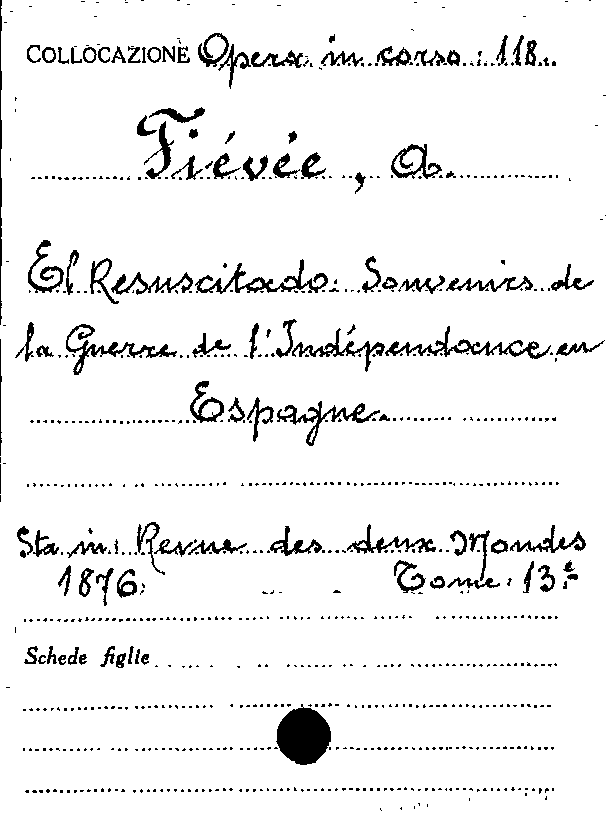 COLLOCAZIONE Opera in corso: 118.
Fiévée, A.
El Resuscitado: Souvenirs de
la Guerre de l'Indépendance en
Espagne.
Sta in: Revue des deux Mondes
1876. Tome: 13e
Schede figlie